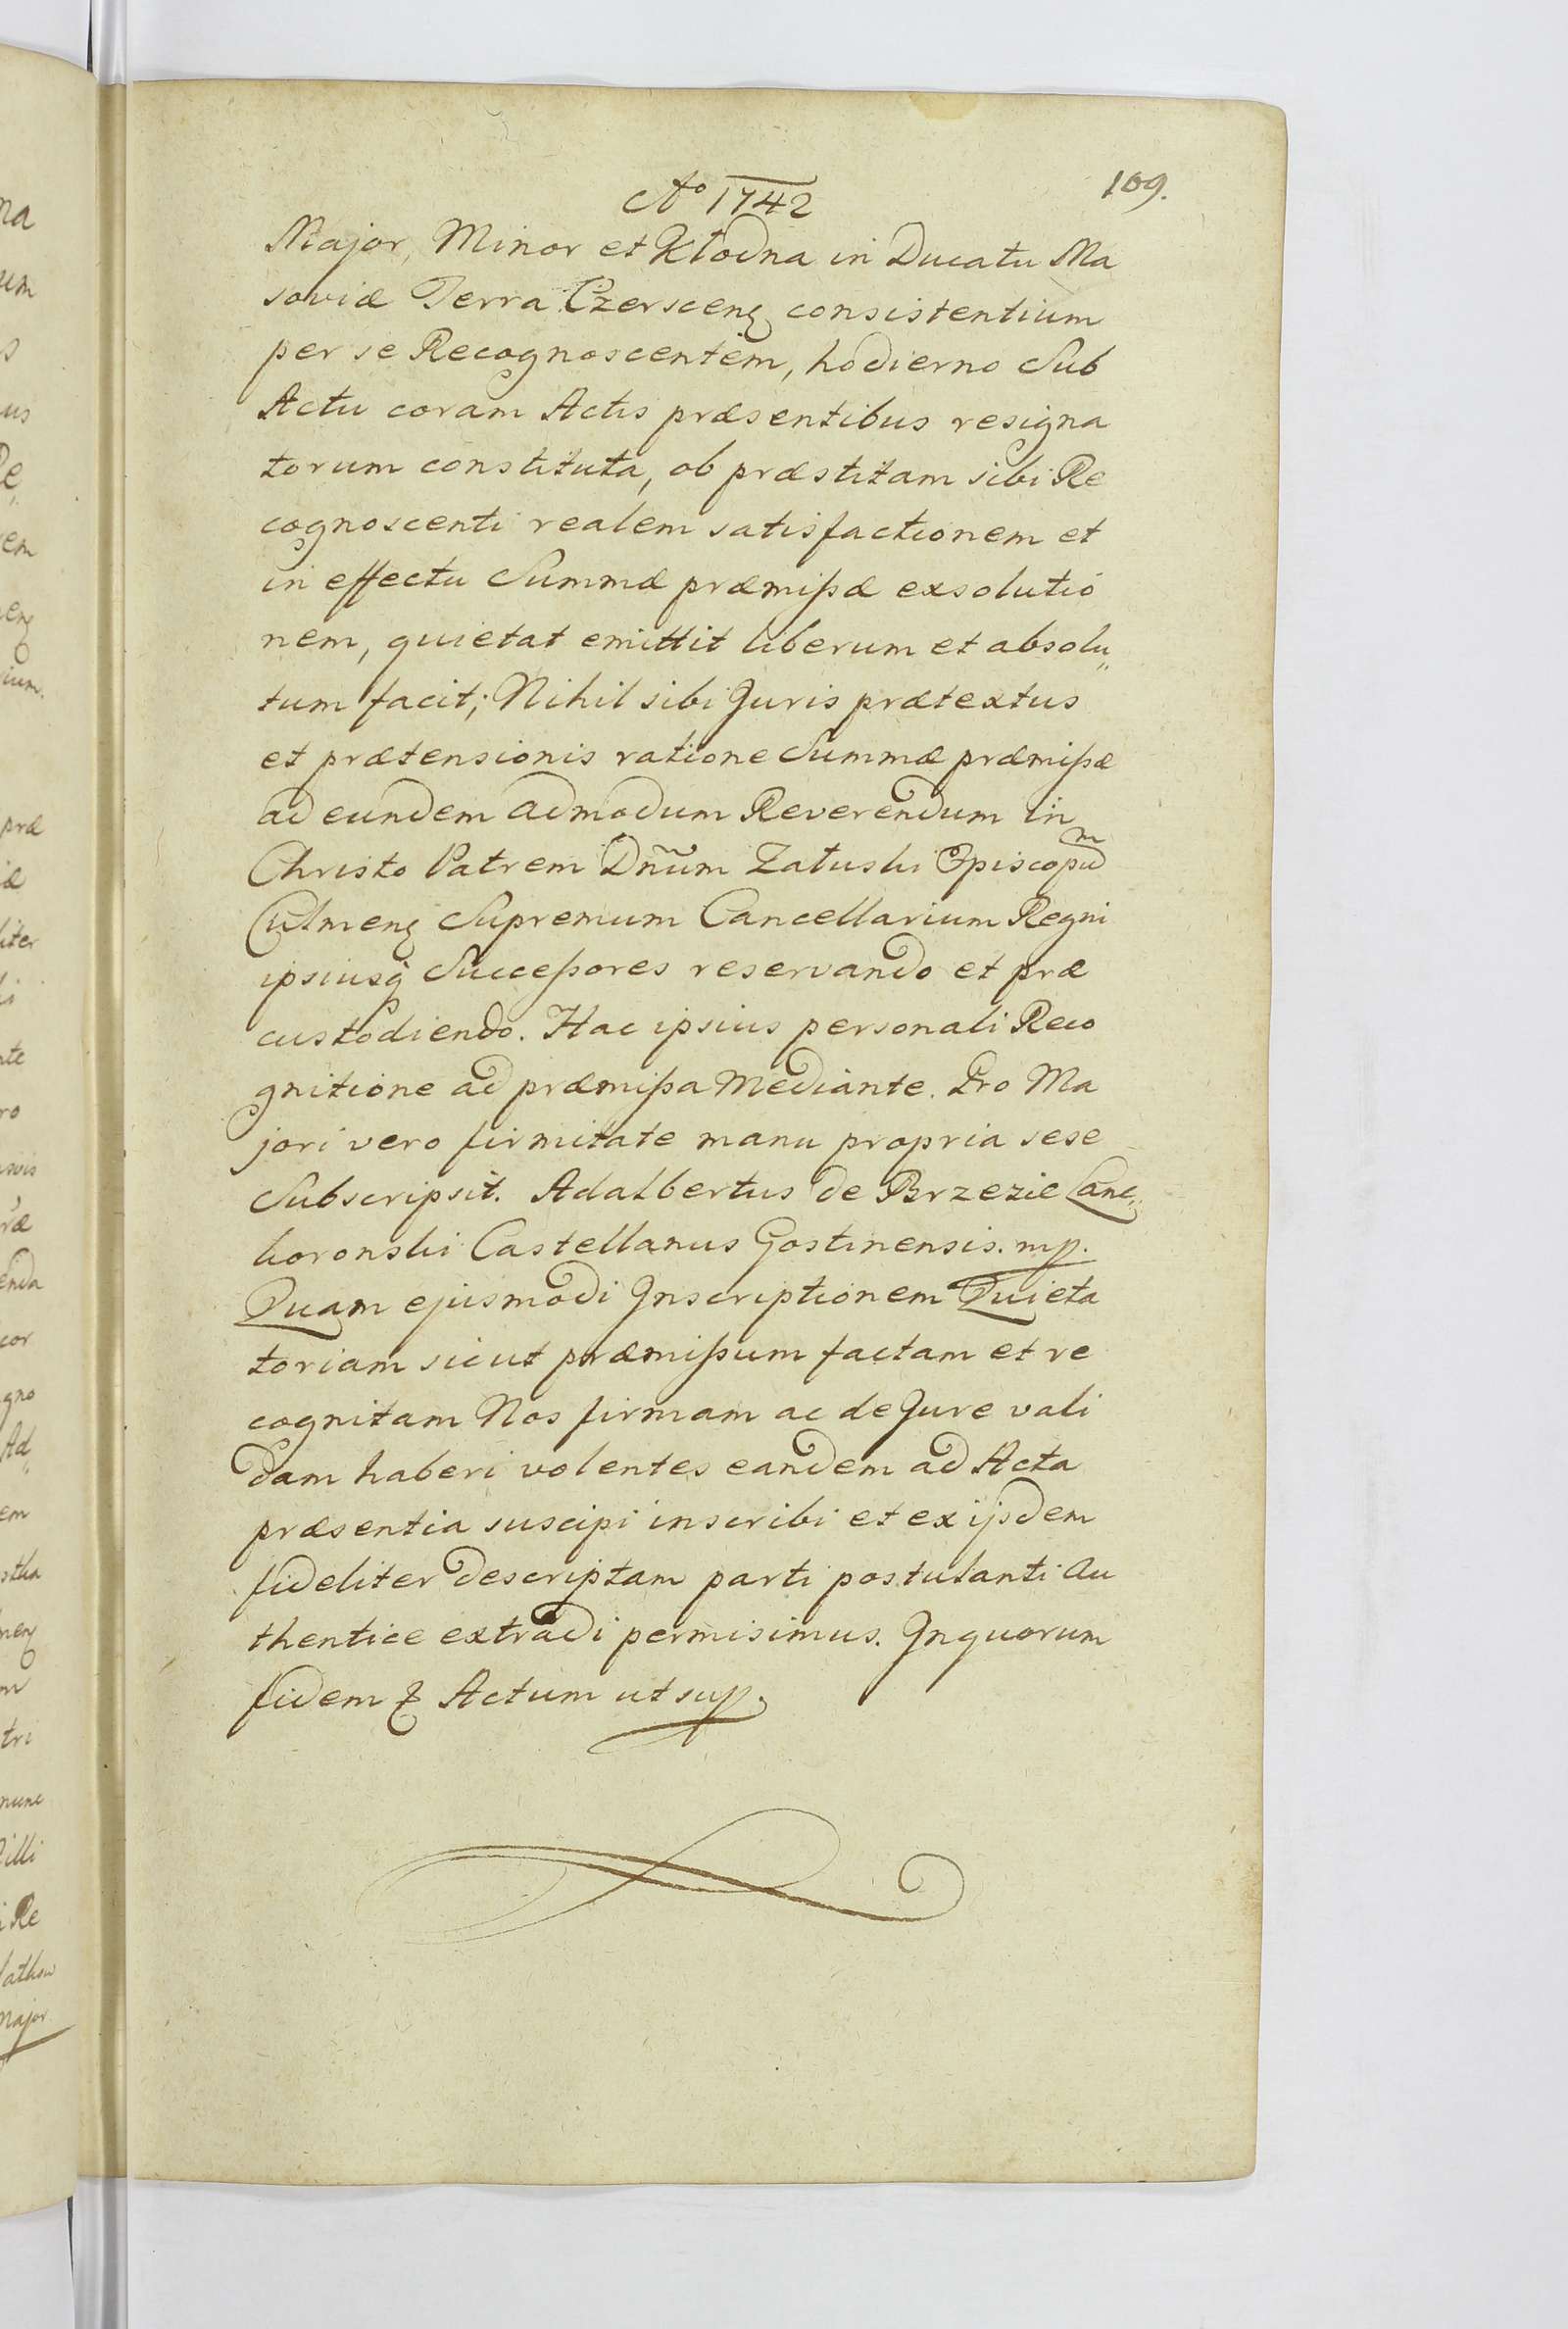 109.
Aº 1742
Major, Minor et Kłodna in Ducatu Ma
soviæ Terra Czerscenꝫ consistentium
per se Recognoscentem, hodierno Sub
Actu coram Actis præsentibus resigna
torum constituta, ob præstitam sibi Re
cognoscenti realem satisfactionem et
in effectu Summæ præmißæ exsolutio
nem, quietat emittit liberum et absolu„
tum facit; Nihil sibi Juris prætextus
et prætensionis ratione Summæ præmißæ
ad eundem admodum Reverendum in
Christo Patrem Dnum Załuski Episcopum
Culmenꝫ Supremum Cancellarium Regni
ipsiusq Succeßores reservando et præ
custodiendo. Hac ipsius personali Reco
gnitione ad præmißa mediante. Pro Ma
jori vero firmitate manu propria sese
Subscripsit. Adalbertus de Brzezie Lanc„
koronski Castellanus Gostinensis. mp.
Quam ejusmodi Inscriptionem Quieta
toriam sicut præmißum factam et re
cognitam Nos firmam ac de Jure vali
dam haberi volentes eandem ad Acta
præsentia suscipi inscribi et ex ijsdem
fideliter descriptam parti postulanti au
thentice extradi permisimus. In quorum
fidem &c Actum ut sup.
na
um
s
us
De„
em
enꝫ
ium.
præ
æ
liter
li
nte
ro
suis
ræ
enda
cor
gno
Ad„
em
menꝫ
m
tri
nunc
illi
i Re
major